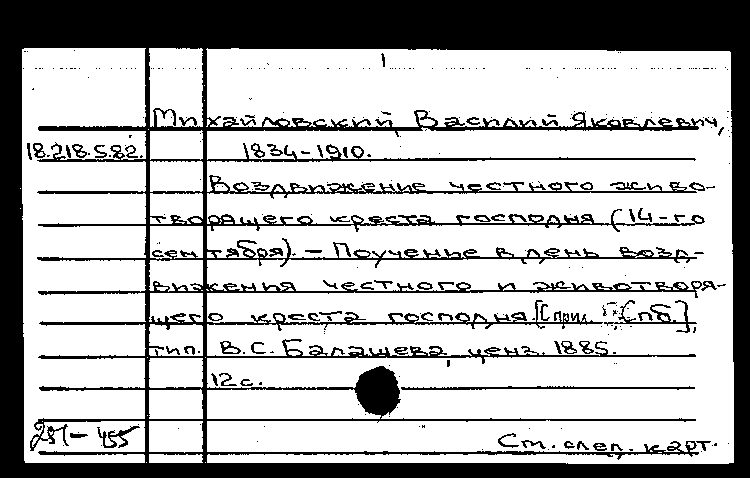 1
Михайловский, Василий Яковлевич,
18.218.5.82. 1834-1910.
Воздвижение честного живо-
творящего креста господня (14-го
сентября). - Поученье в день возд-
вижения честного и животворя-
щего креста господня. [С прил. Спб.],
тип. В.С. Балашева, ценз. 1885.
12 с.
251-455
Ст. след. карт.